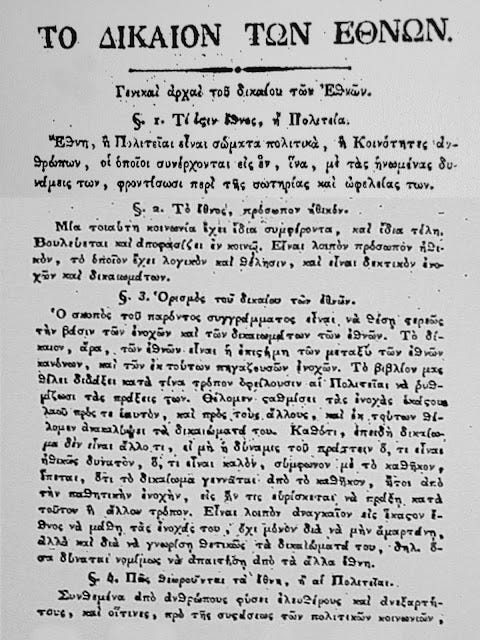 ΤΟ ΔΙΚΑΙΟΝ ΤΩΝ ΕΘΝΩΝ.
Γενικαὶ ἀρχαὶ τοῦ δικαίου τῶν Ἐθνῶν.
§. 1. Τί ἐστιν ἔθνος, ἢ Πολιτεία.
Ἔθνη, ἢ Πολιτεῖαι εἶναι σώματα πολιτικὰ, ἢ Κοινότητες ἀν-
θρώπων, οἱ ὁποῖοι συνέρχονται εἰς ἓν, ἵνα, μὲ τὰς ἡνωμένας δυ-
νάμεις των, φροντίσωσι περὶ τῆς σωτηρίας καὶ ὠφελείας των.
§. 2. Τὸ ἔθνος, πρόσωπον ἠθικόν.
Μία τοιαύτη κοινωνία ἔχει ἴδια συμφέροντα, καὶ ἴδια τέλη.
Βουλεύεται καὶ ἀποφασίζει ἐν κοινῷ. Εἶναι λοιπὸν πρόσωπον ἠθι-
κὸν, τὸ ὁποῖον ἔχει λογικὸν καὶ θέλησιν, καὶ εἶναι δεκτικὸν ἐνο-
χῶν καὶ δικαιωμάτων.
§. 3. Ὁρισμὸς τοῦ δικαίου τῶν ἐθνῶν.
Ὁ σκοπὸς τοῦ παρόντος συγγράμματος εἶναι νὰ θέσῃ στερεῶς
τὴν βάσιν τῶν ἐνοχῶν καὶ τῶν δικαιωμάτων τῶν ἐθνῶν. Τὸ δί-
καιον, ἄρα, τῶν ἐθνῶν εἶναι ἡ ἐπιστήμη τῶν μεταξὺ τῶν ἐθνῶν
κανόνων, καὶ τῶν ἐκ τούτων πηγαζουσῶν ἐνοχῶν. Τὸ βιβλίον μας
θέλει διδάξει κατὰ τίνα τρόπον ὀφείλουσιν αἱ Πολιτεῖαι νὰ ῥυθ-
μίζωσι τὰς πράξεις των. Θέλομεν σταθμίσει τὰς ἐνοχὰς ἑκάστου
λαοῦ πρός τε ἑαυτὸν, καὶ πρὸς τοὺς ἄλλους, καὶ ἐκ τούτων θέ-
λομεν ἀνακαλύψει τὰ δικαιώματά του. Καθότι, ἐπειδὴ δικαίω-
μα δὲν εἶναι ἄλλο τι, εἰ μὴ ἡ δύναμις τοῦ πράττειν ὅ, τι εἶναι
ἠθικῶς δυνατὸν, ὅ, τι εἶναι καλὸν, σύμφωνον μὲ τὸ καθῆκον,
ἕπεται, ὅτι τὸ δικαίωμα γεννᾶται ἀπὸ τὸ καθῆκον, ἤτοι ἀπὸ
τὴν παθητικὴν ἐνοχὴν, εἰς ἥν τις εὑρίσκεται νὰ πράξῃ κατὰ
τοῦτον ἢ ἄλλον τρόπον. Εἶναι λοιπὸν ἀναγκαῖον εἰς ἕκαστον ἔ-
θνος νὰ μάθῃ τὰς ἐνοχάς του, ὄχι μόνον διὰ νὰ μὴν ἁμαρτάνῃ,
ἀλλὰ καὶ διὰ νὰ γνωρίσῃ θετικῶς τὰ δικαιώματά του, δηλ. ὅ-
σα δύναται νομίμως νὰ ἀπαιτήσῃ ἀπὸ τὰ ἄλλα ἔθνη.
§. 4. Πῶς θεωροῦνται τὰ ἔθνη, ἢ αἱ Πολιτεῖαι.
Συνθεμένα ἀπὸ ἀνθρώπους φύσει ἐλευθέρους καὶ ἀνεξαρτή-
τους, καὶ οἵτινες, πρὸ τῆς συστάσεως τῶν πολιτικῶν κοινωνιῶν,